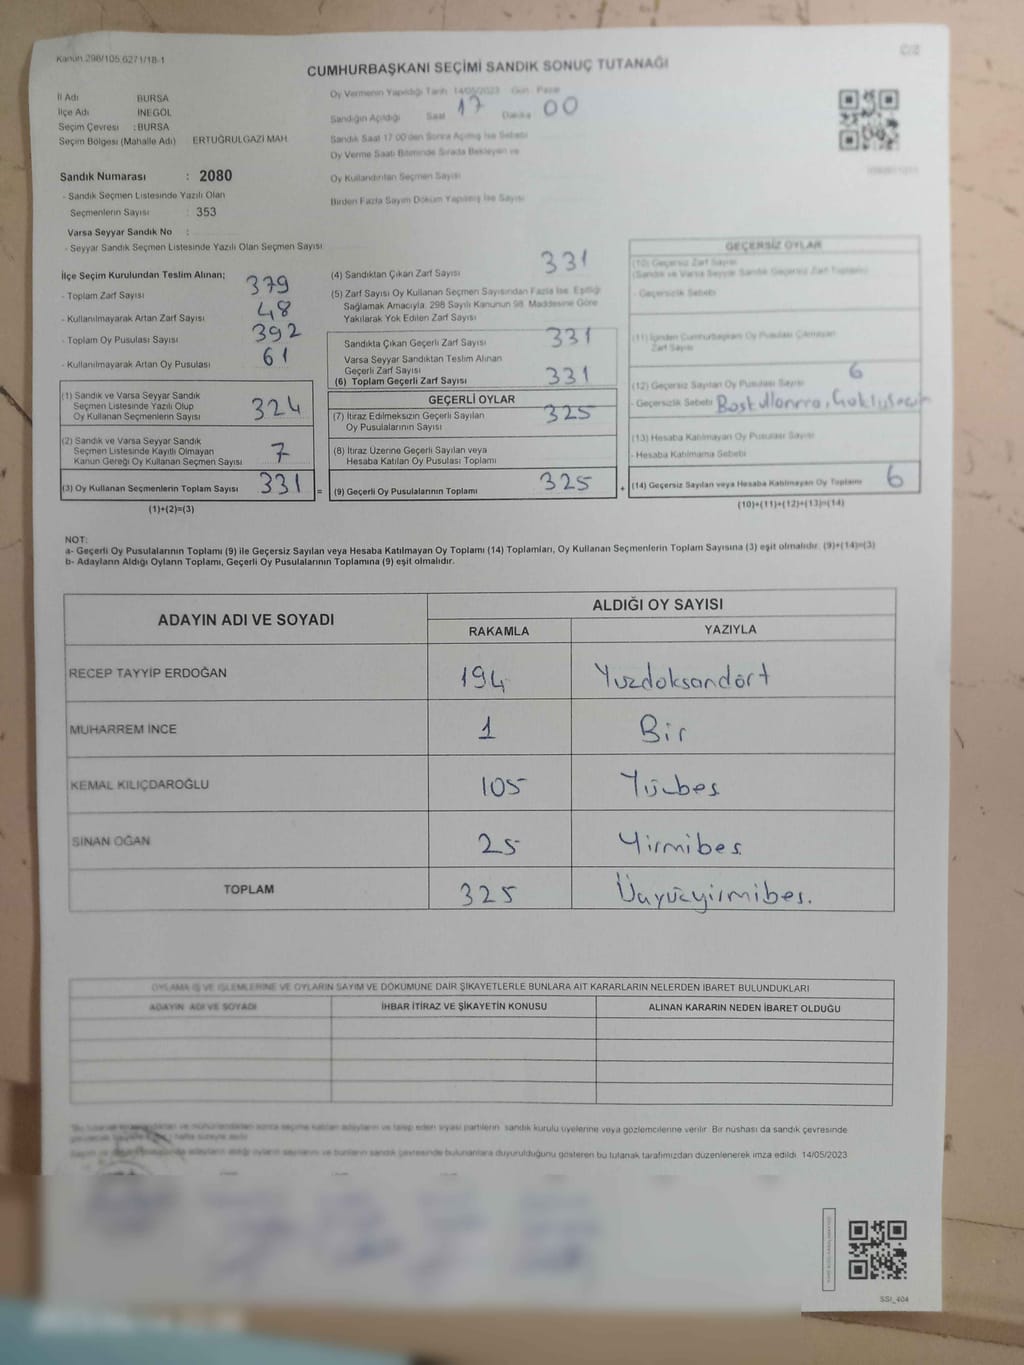 Kanun 298/105,6271/18-1
CUMHURBAŞKANI SEÇİMİ SANDIK SONUÇ TUTANAĞI
İl Adı BURSA
İlçe Adı İNEGÖL
Seçim Çevresi : BURSA
Seçim Bölgesi (Mahalle Adı) ERTUĞRULGAZİ MAH.
Oy Vermenin Yapıldığı Tarih 14/05/2023 Gün Pazar
Sandığın Açıldığı Saat 17 Dakika 00
Sandık Saat 17:00'den Sonra Açılmış İse Sebebi
Oy Verme Saati Bitiminde Sırada Bekleyen ve
Oy Kullandırılan Seçmen Sayısı
Birden Fazla Sayım Döküm Yapılmış İse Sayısı
Sandık Numarası : 2080
- Sandık Seçmen Listesinde Yazılı Olan
Seçmenlerin Sayısı : 353
Varsa Seyyar Sandık No :
- Seyyar Sandık Seçmen Listesinde Yazılı Olan Seçmen Sayısı
İlçe Seçim Kurulundan Teslim Alınan;
- Toplam Zarf Sayısı 379
- Kullanılmayarak Artan Zarf Sayısı 48
- Toplam Oy Pusulası Sayısı 392
- Kullanılmayarak Artan Oy Pusulası 61
(1) Sandık ve Varsa Seyyar Sandık
Seçmen Listesinde Yazılı Olup
Oy Kullanan Seçmenlerin Sayısı 324
(2) Sandık ve Varsa Seyyar Sandık
Seçmen Listesinde Kayıtlı Olmayan
Kanun Gereği Oy Kullanan Seçmen Sayısı 7
(3) Oy Kullanan Seçmenlerin Toplam Sayısı 331 =
(1)+(2)=(3)
(4) Sandıktan Çıkan Zarf Sayısı 331
(5) Zarf Sayısı Oy Kullanan Seçmen Sayısından Fazla İse, Eşitliği
Sağlamak Amacıyla, 298 Sayılı Kanunun 98. Maddesine Göre
Yakılarak Yok Edilen Zarf Sayısı
Sandıkta Çıkan Geçerli Zarf Sayısı 331
Varsa Seyyar Sandıktan Teslim Alınan
Geçerli Zarf Sayısı
(6) Toplam Geçerli Zarf Sayısı 331
GEÇERLİ OYLAR
(7) İtiraz Edilmeksizin Geçerli Sayılan
Oy Pusulalarının Sayısı 325
(8) İtiraz Üzerine Geçerli Sayılan veya
Hesaba Katılan Oy Pusulası Toplamı
(9) Geçerli Oy Pusulalarının Toplamı 325 +
GEÇERSİZ OYLAR
(10) Geçersiz Zarf Sayısı
(Sandık ve Varsa Seyyar Sandık Geçersiz Zarf Toplamı)
- Geçersizlik Sebebi
(11) İçinden Cumhurbaşkanı Oy Pusulası Çıkmayan
Zarf Sayısı
(12) Geçersiz Sayılan Oy Pusulası Sayısı 6
- Geçersizlik Sebebi
(13) Hesaba Katılmayan Oy Pusulası Sayısı
- Hesaba Katılmama Sebebi
(14) Geçersiz Sayılan veya Hesaba Katılmayan Oy Toplamı 6
(10)+(11)+(12)+(13)=(14)
NOT:
a- Geçerli Oy Pusulalarının Toplamı (9) ile Geçersiz Sayılan veya Hesaba Katılmayan Oy Toplamı (14) Toplamları, Oy Kullanan Seçmenlerin Toplam Sayısına (3) eşit olmalıdır. (9)+(14)=(3)
b- Adayların Aldığı Oyların Toplamı, Geçerli Oy Pusulalarının Toplamına (9) eşit olmalıdır.
ADAYIN ADI VE SOYADI ALDIĞI OY SAYISI
RAKAMLA YAZIYLA
RECEP TAYYİP ERDOĞAN 194 Yuzdoksandört
MUHARREM İNCE 1 Bir
KEMAL KILIÇDAROĞLU 105 Yüzbes
SİNAN OĞAN 25 Yirmibes
TOPLAM 325 Üçyüzyirmibes.
OYLAMA İŞ VE İŞLEMLERİNE VE OYLARIN SAYIM VE DÖKÜMÜNE DAİR ŞİKAYETLERLE BUNLARA AİT KARARLARIN NELERDEN İBARET BULUNDUKLARI
ADAYIN ADI VE SOYADI İHBAR İTİRAZ VE ŞİKAYETİN KONUSU ALINAN KARARIN NEDEN İBARET OLDUĞU
sonra seçime katılan adayların ve talep eden siyasi partilerin sandık kurulu üyelerine veya gözlemcilerine verilir. Bir nüshası da sandık çevresinde
adayların aldığı oyların sayılarını ve bunların sandık çevresinde bulunanlara duyurulduğunu gösteren bu tutanak tarafımızdan düzenlenerek imza edildi. 14/05/2023
SSI_404